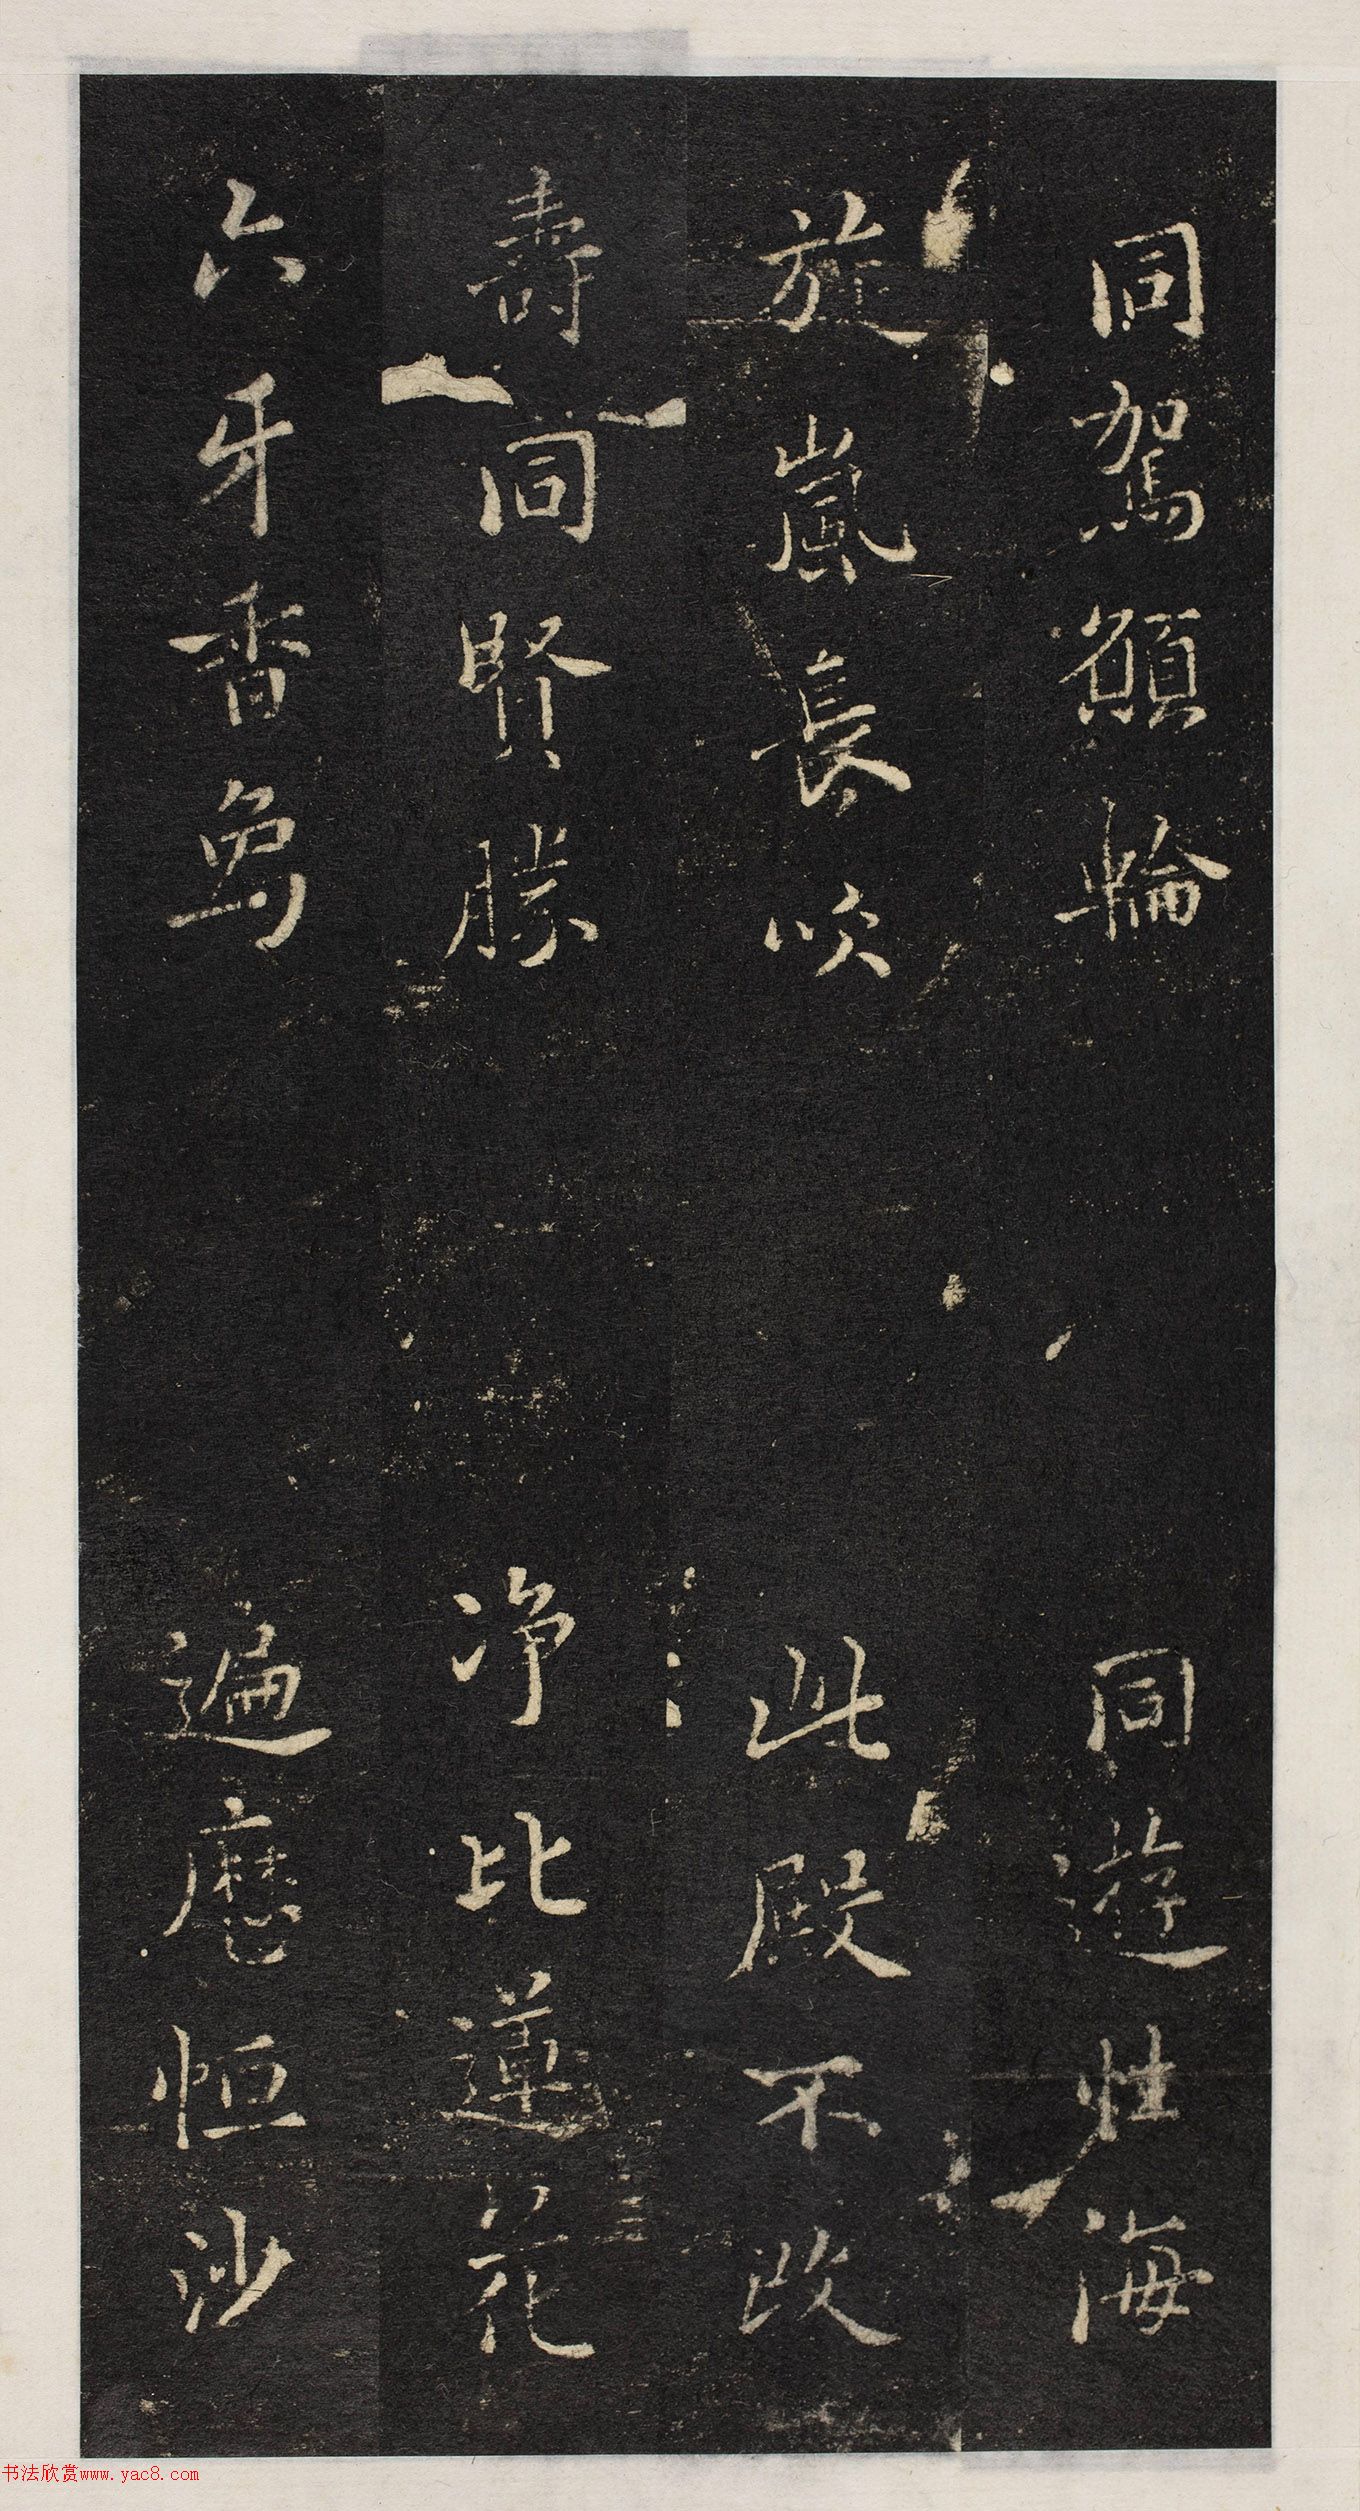 同駕願輪 同遊性海
旋嵐長吹 此殿不改
壽同賢勝 浄比蓮花
六牙香象 遍歷恒沙
书法欣赏www.yac8.com